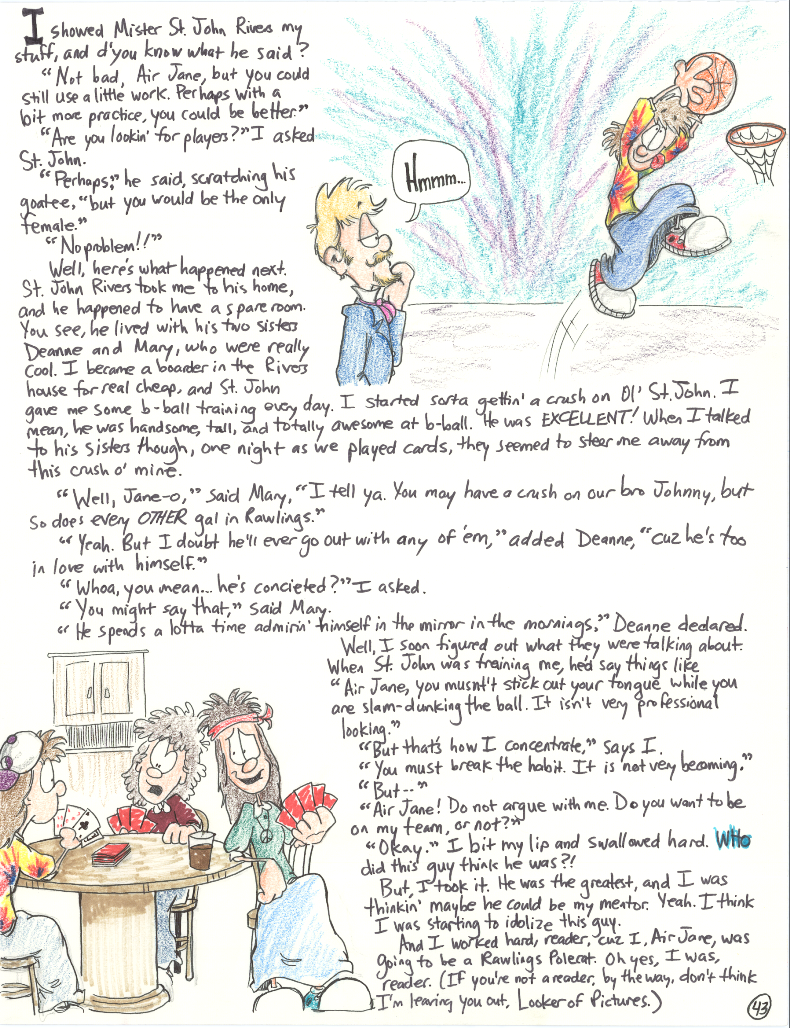 I showed Mister St. John Rivers my
stuff, and d'you know what he said?
"Not bad, Air Jane, but you could
still use a little work. Perhaps with a
bit more practice, you could be better."
"Are you lookin' for players?" I asked
St. John.
"Perhaps," he said, scratching his
goatee, "but you would be the only
female."
"No problem!!"
Well, here's what happened next.
St. John Rivers took me to his home,
and he happened to have a spare room.
You see, he lived with his two sisters
Deanne and Mary, who were really
cool. I became a boarder in the Rivers
house for real cheap, and St. John
gave me some b-ball training every day. I started sorta gettin' a crush on Ol' St. John. I
mean, he was handsome, tall, and totally awesome at b-ball. He was EXCELLENT! When I talked
to his sisters though, one night as we played cards, they seemed to steer me away from
this crush o' mine.
"Well, Jane-o," said Mary, "I tell ya. You may have a crush on our bro Johnny, but
so does every OTHER gal in Rawlings."
"Yeah. But I doubt he'll ever go out with any of 'em," added Deanne, "cuz he's too
in love with himself."
"Whoa, you mean... he's concieted?" I asked.
"You might say that," said Mary.
"He spends a lotta time admirin' himself in the mirror in the mornings," Deanne declared.
Well, I soon figured out what they were talking about.
When St. John was training me, he'd say things like
"Air Jane, you musnt't stick out your tongue while you
are slam-dunking the ball. It isn't very professional
looking."
"But that's how I concentrate," says I.
"You must break the habit. It is not very becoming."
"But--"
"Air Jane! Do not argue with me. Do you want to be
on my team, or not?"
"Okay." I bit my lip and swallowed hard. WHO
did this guy think he was?!
But, I took it. He was the greatest, and I was
thinkin' maybe he could be my mentor. Yeah. I think
I was starting to idolize this guy.
And I worked hard, reader, cuz I, Air Jane, was
going to be a Rawlings Polecat. Oh yes, I was,
reader. (If you're not a reader, by the way, don't think
I'm leaving you out, Looker of Pictures.)
Hmmm...
43